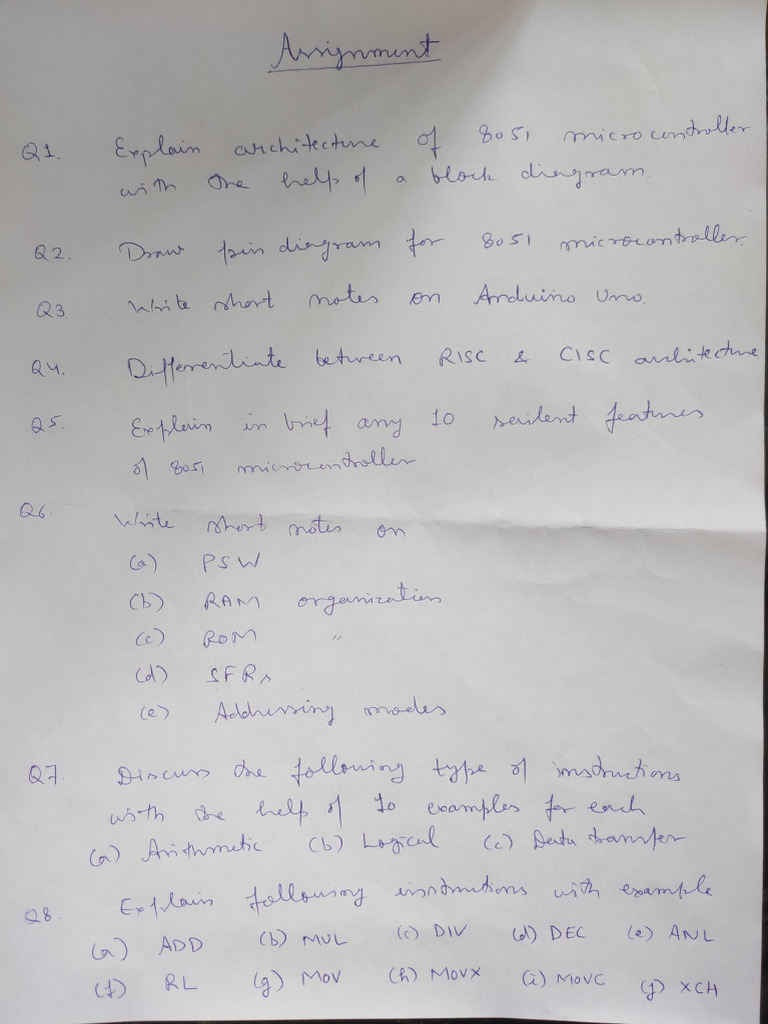 Assignment
Q1. Explain architecture of 8051 microcontroller
with the help of a block diagram.
Q2. Draw pin diagram for 8051 microcontroller.
Q3 Write short notes on Arduino Uno.
Q4. Differentiate between RISC & CISC architecture
Q5. Explain in brief any 10 sailent features
of 8051 microcontroller
Q6. Write short notes on
(a) PSW
(b) RAM organization
(c) ROM "
(d) SFRs
(e) Addressing modes
Q7. Discuss the following type of instructions
with the help of 10 examples for each
(a) Arithmetic (b) Logical (c) Data transfer
Q8. Explain following instructions with example
(a) ADD (b) MUL (c) DIV (d) DEC (e) ANL
(f) RL (g) MOV (h) MOVX (i) MOVC (j) XCH